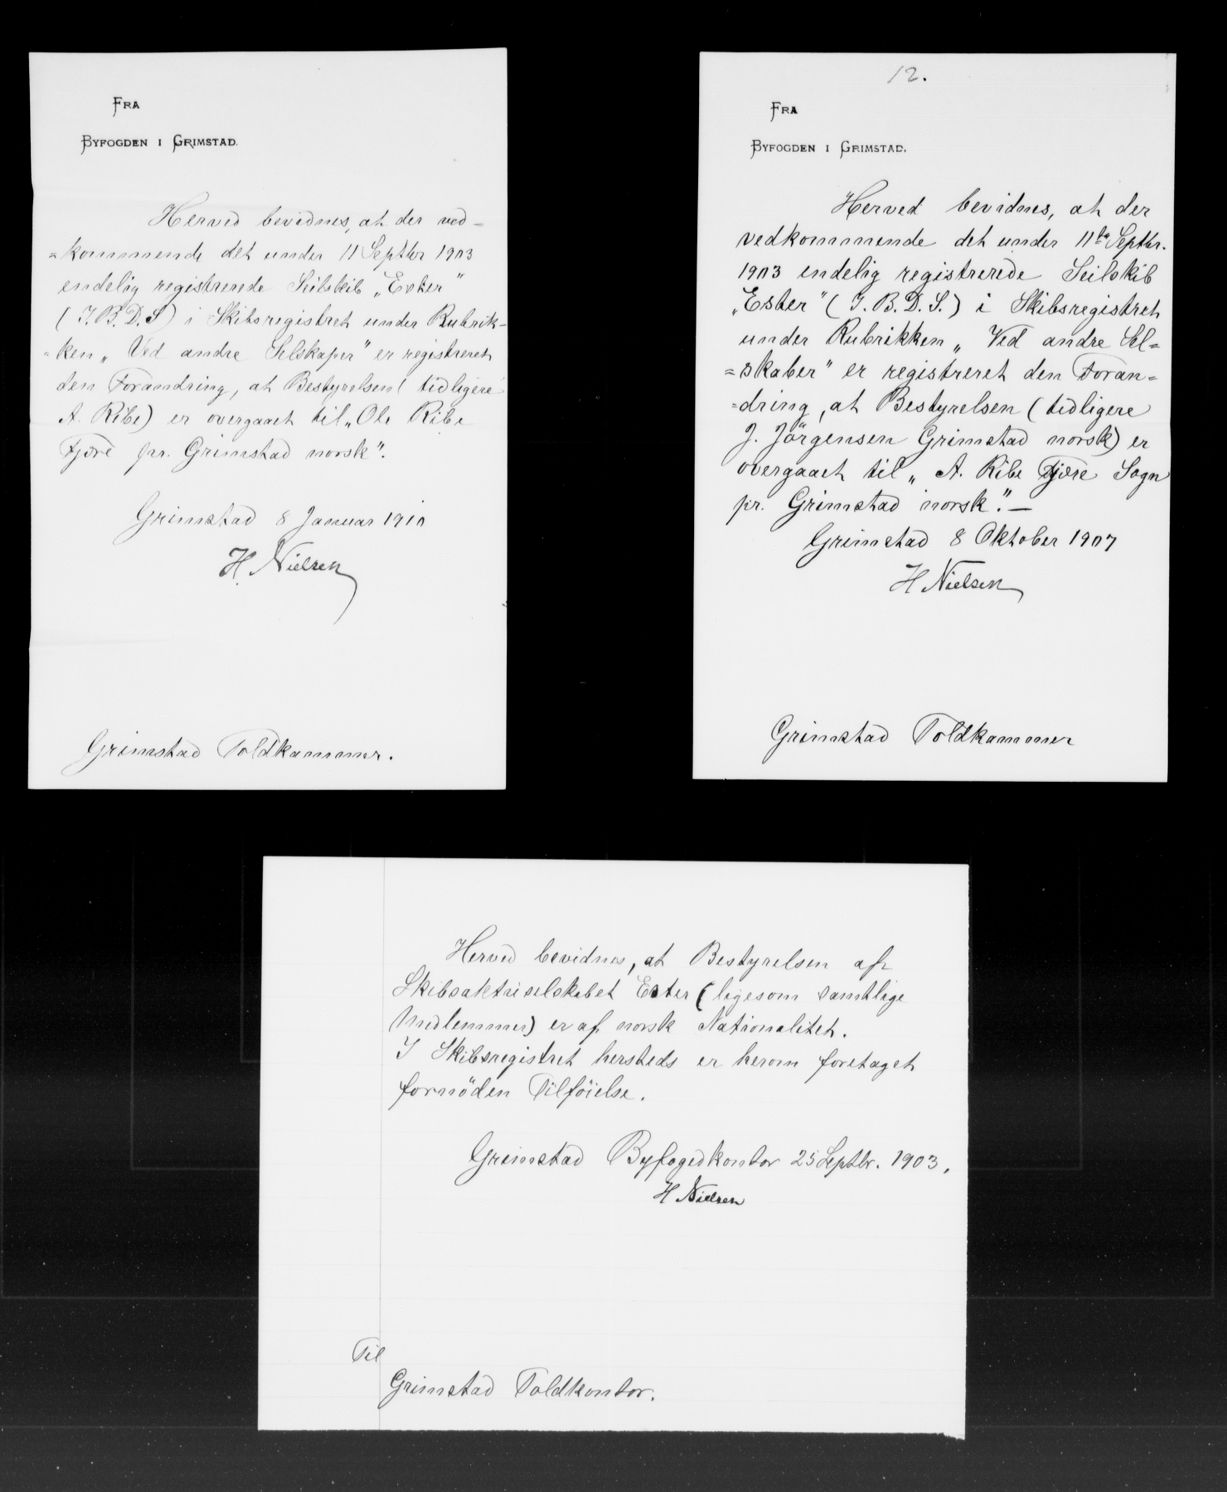 FRA
BYFOGDEN I GRIMSTAD.
Herved bevidnes, at der ved-
=kommende det under 11 Septbr 1903
endelig registrerede Seilskib „Ester"
(J.B.D.S) i Skibsregistret under Rubrik-
=ken „Ved andre Selskaper" er registreret
den Forandring, at Bestyrelsen (tidligere
A. Ribe) er overgaaet til „Ole Ribe
Fjære pr. Grimstad norsk".
Grimstad 8 Januar 1910
H. Nielsen
Grimstad Toldkammer.
12.
FRA
BYFOGDEN I GRIMSTAD.
Herved bevidnes, at der
vedkommende det under 11te Septbr.
1903 endelig registrerede Seilskib
„Ester" (J.B.D.S.) i Skibsregistret
under Rubrikken „Ved andre Sel=
=skaber" er registreret den Foran=
=dring, at Bestyrelsen (tidligere
J. Jörgensen Grimstad norsk) er
overgaaet til „A. Ribe Fjære Sogn
pr. Grimstad norsk".—
Grimstad 8 Oktober 1907
H Nielsen
Grimstad Toldkammer
Herved bevidnes, at Bestyrelsen af
Skibsaktieselskabet Ester (ligesom samtlige
Medlemmer) er af norsk Nationalitet.
I Skibsregistret hersteds er herom foretaget
fornöden Tilföielse.
Grimstad Byfogedkontor 25 Septbr. 1903.
H Nielsen
Til
Grimstad Toldkontor.